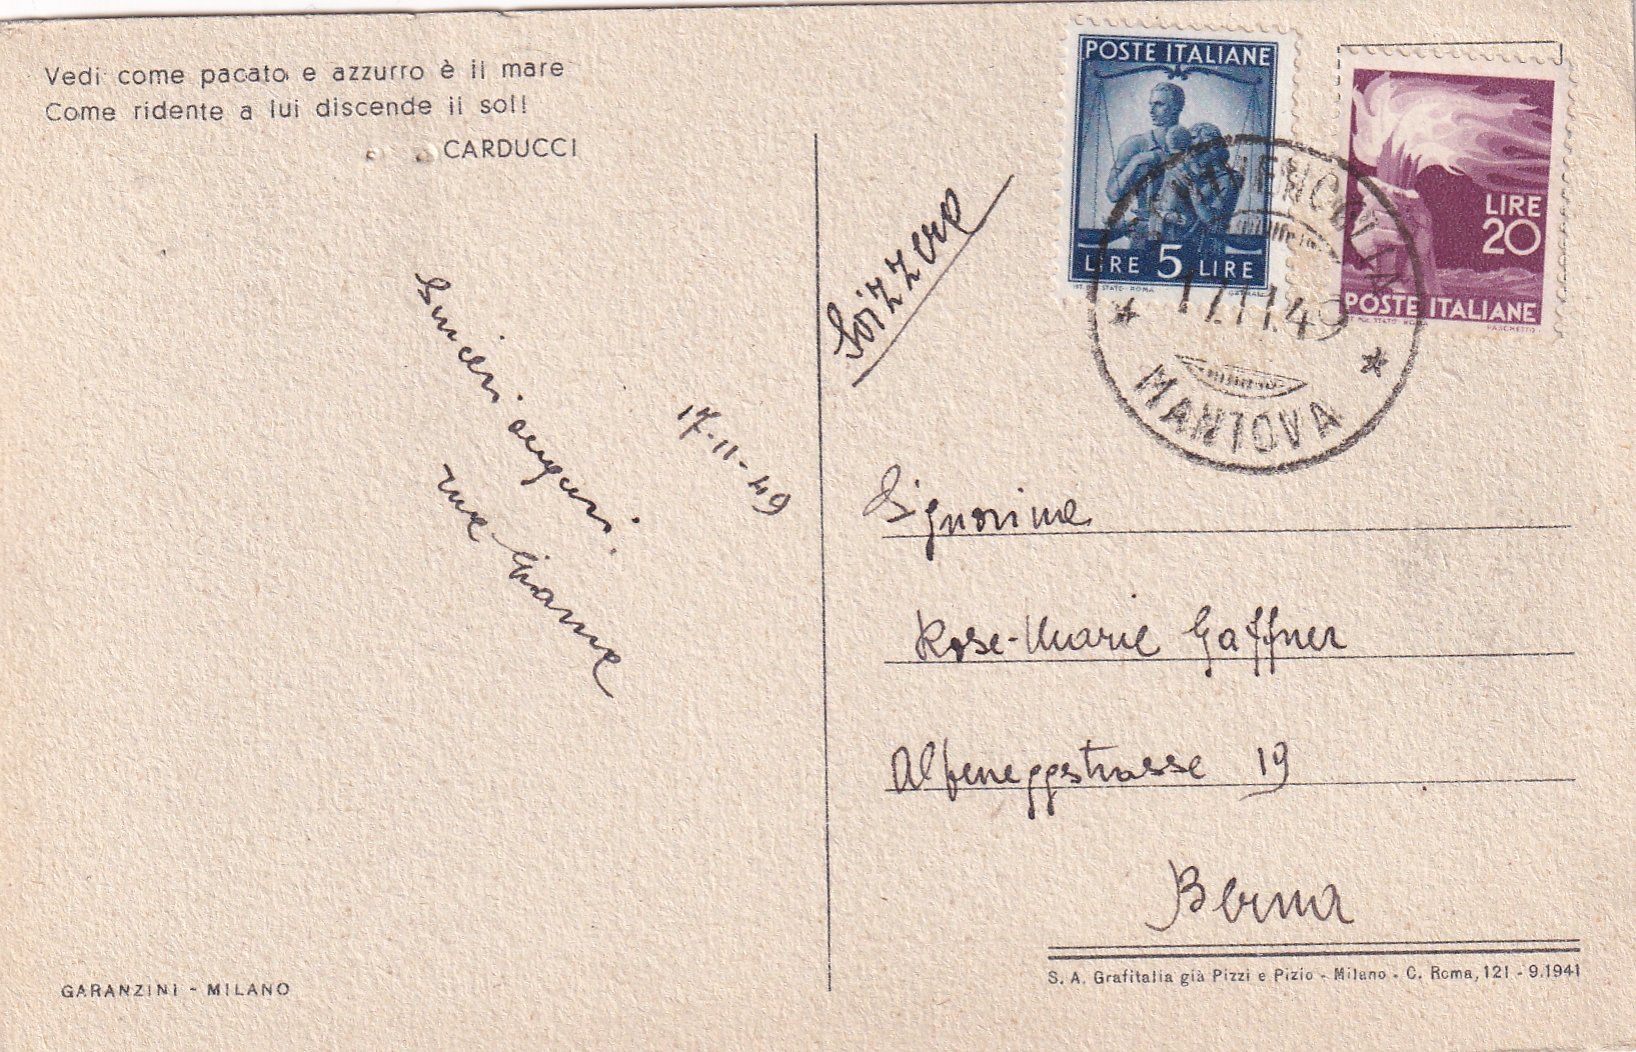 Vedi come pacato e azzurro è il mare
Come ridente a lui discende il sol!
CARDUCCI
POSTE ITALIANE
LIRE 5 LIRE
LIRE
20
POSTE ITALIANE
17.11.49
MANTOVA
Svizzera
17-11-49
Sinceri auguri.
Signorina
Rose-Marie Gaffner
Alpeneggstrasse 19
Berna
GARANZINI - MILANO
S. A. Grafitalia già Pizzi e Pizio - Milano - C. Roma, 121 - 9.1941